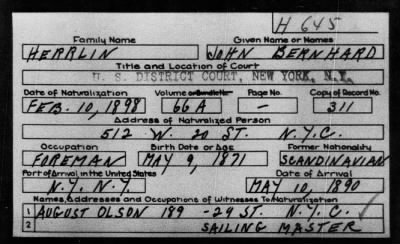 H 645
Family Name Given Name or Names
HERRLIN JOHN BERNHARD
Title and Location of Court
U. S. DISTRICT COURT, NEW YORK, N.Y.
Date of Naturalization Volume or Bundle No. Page No. Copy of Record No.
FEB. 10, 1898 66A – 311
Address of Naturalized Person
512 W. 20 ST. N.Y.C.
Occupation Birth Date or Age Former Nationality
FOREMAN MAY 9, 1871 SCANDINAVIAN
Port of Arrival in the United States Date of Arrival
N.Y. N.Y. MAY 10, 1890
Names, Addresses and Occupations of Witnesses To Naturalization
1 AUGUST OLSON 189 -29 ST. N.Y.C.
2 SAILING MASTER